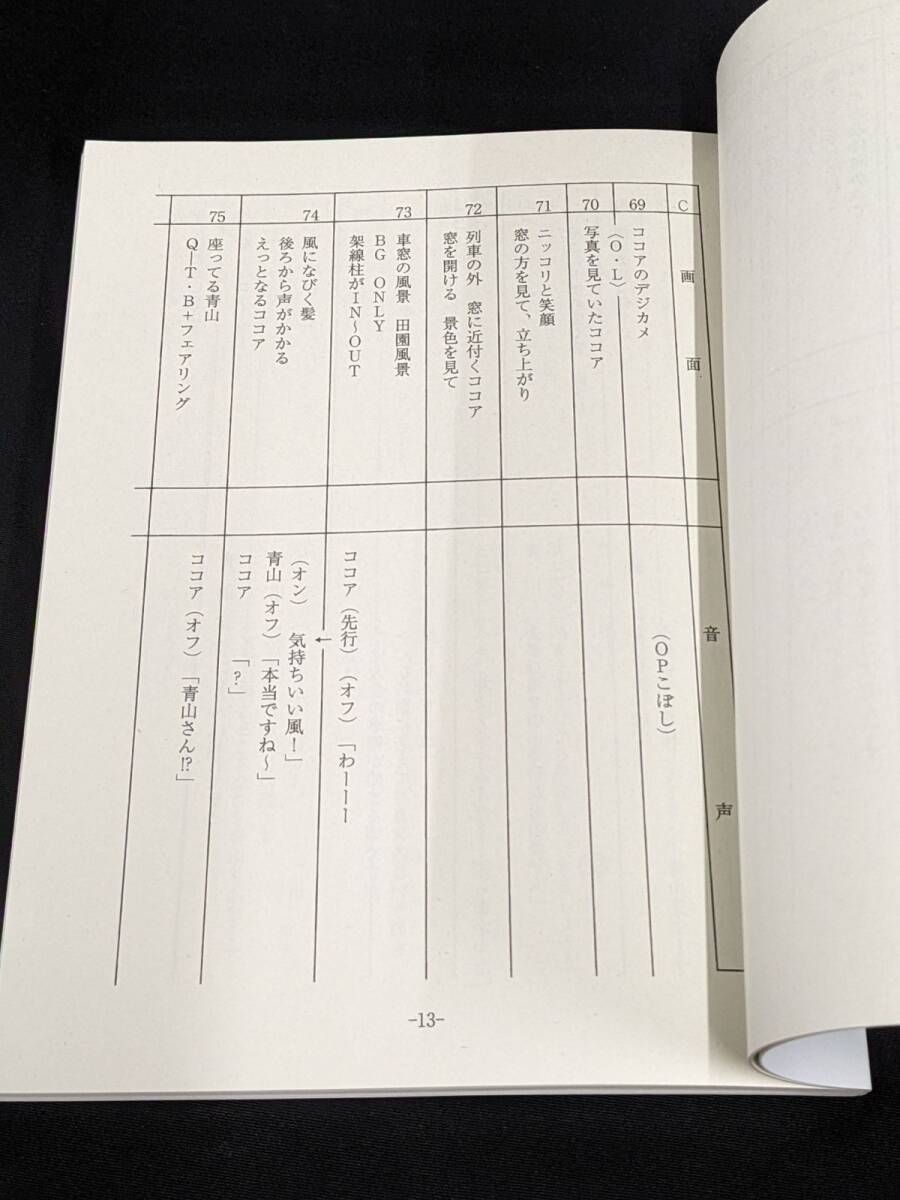 C
画面
音声
69
ココアのデジカメ
(OPこぼし)
〈O・L〉
70
写真を見ていたココア
71
ニッコリと笑顔
窓の方を見て、立ち上がり
72
列車の外　窓に近付くココア
窓を開ける　景色を見て
73
車窓の風景　田園風景
BG　ONLY
架線柱がIN～OUT
ココア（先行）（オフ）「わーーー
←
74
風になびく髪
後ろから声がかかる
えっとなるココア
（オン）　気持ちいい風！」
青山（オフ）「本当ですね～」
ココア　　　「？」
75
座ってる青山
Q―T・B+フェアリング
ココア（オフ）「青山さん!?」
-13-